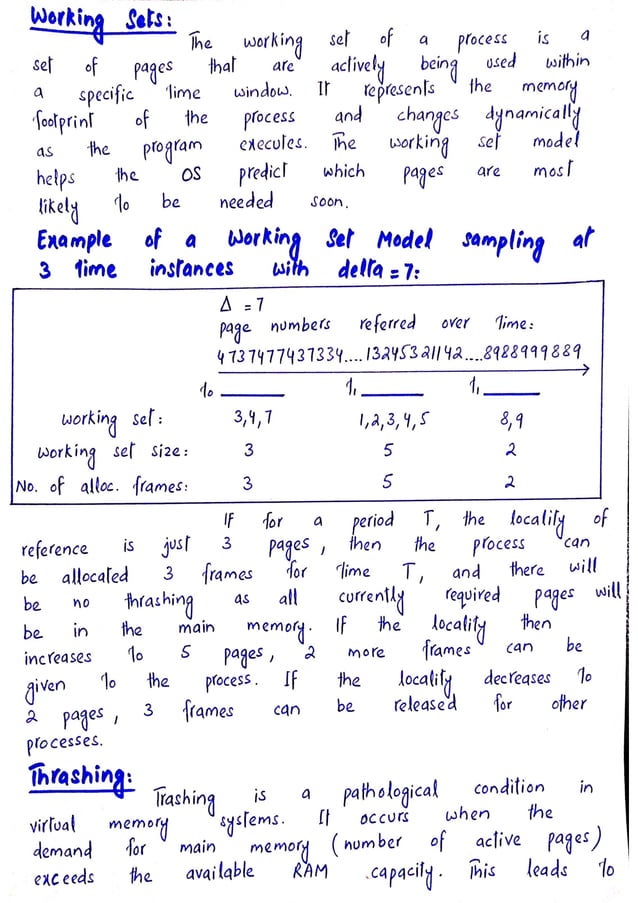 Working Sets:
The working set of a process is a
set of pages that are actively being used within
a specific time window. It represents the memory
footprint of the process and changes dynamically
as the program executes. The working set model
helps the OS predict which pages are most
likely to be needed soon.
Example of a Working Set Model sampling at
3 time instances with delta = 7:
Δ = 7
page numbers referred over time:
4737477437334....1324532 1142....8988999889
t₀ t₁ t₁
working set: 3,4,7 1,2,3,4,5 8,9
working set size: 3 5 2
No. of alloc. frames: 3 5 2
If for a period T, the locality of
reference is just 3 pages, then the process can
be allocated 3 frames for time T, and there will
be no thrashing as all currently required pages will
be in the main memory. If the locality then
increases to 5 pages, 2 more frames can be
given to the process. If the locality decreases to
2 pages, 3 frames can be released for other
processes.
Thrashing:
Trashing is a pathological condition in
virtual memory systems. It occurs when the
demand for main memory (number of active pages)
exceeds the available RAM capacity. This leads to